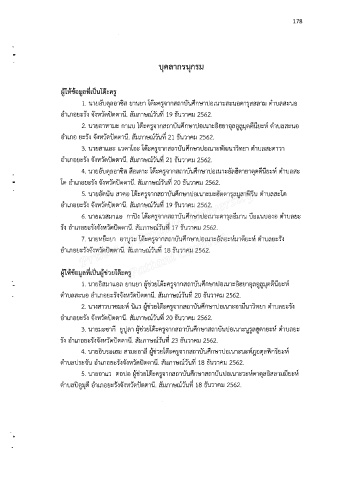 178
บุคลากรนุกรม
ผู้ให้ข้อมูลที่เป็นโต๊ะครู
1. นายอับดุลอาซิส ยานยา โต๊ะครูจากสถาบันศึกษาปอเนาะสะนอดารุสสลาม ตำบลสะนอ
อำเภอยะรัง จังหวัดปัตตานี. สัมภาษณ์วันที่ 19 ธันวาคม 2562.
2. นายอาหามะ กาแบ โต๊ะครูจากสถาบันศึกษาปอเนาะอิสยาอุลอูลูมุดดีนียะห์ ตำบลสะนอ
อำเภอ ยะรัง จังหวัดปัตตานี. สัมภาษณ์วันที่ 21 ธันวาคม 2562.
3. นายสาและ แวดาโอะ โต๊ะครูจากสถาบันศึกษาปอเนาะพัฒนาวิทยา ตำบลสะดาวา
อำเภอยะรัง จังหวัดปัตตานี. สัมภาษณ์วันที่ 21 ธันวาคม 2562.
4. นายอับดุลอาซิส ดือเดาะ โต๊ะครูจากสถาบันศึกษาปอเนาะอัลฮีดายาตุดดีนียะห์ ตำบลสะ
โต อำเภอยะรัง จังหวัดปัตตานี. สัมภาษณ์วันที่ 20 ธันวาคม 2562.
5. นายอัดนัน สาคอ โต๊ะครูจากสถาบันศึกษาปอเนาะมะฮัดดารุลมูลาฟีรีน ตำบลสะโต
อำเภอยะรัง จังหวัดปัตตานี. สัมภาษณ์วันที่ 19 ธันวาคม 2562.
6. นายแวสมาแอ การีจิ โต๊ะครูจากสถาบันศึกษาปอเนาะดารุลอีมาน บ้านบองอ ตำบลยะ
รัง อำเภอยะรังจังหวัดปัตตานี. สัมภาษณ์วันที่ 17 ธันวาคม 2562.
7. นายหยีะยา อาบูวะ โต๊ะครูจากสถาบันศึกษาปอเนาะอัลอะห์มาดียะห์ ตำบลยะรัง
อำเภอยะรังจังหวัดปัตตานี. สัมภาษณ์วันที่ 18 ธันวาคม 2562.
ผู้ให้ข้อมูลที่เป็นผู้ช่วยโต๊ะครู
1. นายอิสมาแอล ยานยา ผู้ช่วยโต๊ะครูจากสถาบันศึกษาปอเนาะอิสยาอุลอูลูมุดดีนียะห์
ตำบลสะนอ อำเภอยะรังจังหวัดปัตตานี. สัมภาษณ์วันที่ 20 ธันวาคม 2562.
2. นางสาวนาซมะห์ นิแว ผู้ช่วยโต๊ะครูจากสถาบันศึกษาปอเนาะอามีนาวิทยา ตำบลยะรัง
อำเภอยะรังจังหวัดปัตตานี. สัมภาษณ์วันที่ 20 ธันวาคม 2562.
3. นายมะซากี ยูปูลา ผู้ช่วยโต๊ะครูจากสถาบันศึกษาสถาบันปอเนาะนูรุลฮูดายะห์ ตำบลยะ
รัง อำเภอยะรังจังหวัดปัตตานี. สัมภาษณ์วันที่ 23 ธันวาคม 2562.
4. นายอิบรอเฮม สามะอาลี ผู้ช่วยโต๊ะครูจากสถาบันศึกษาปอเนาะ
ตำบลประจัน อำเภอยะรังจังหวัดปัตตานี. สัมภาษณ์วันที่ 18 ธันวาคม 2562.
5. นายอาแว ตอปอ ผู้ช่วยโต๊ะครูจากสถาบันศึกษาสถาบันปอเนาะ
ตำบลปิตูมุดี อำเภอยะรังจังหวัดปัตตานี. สัมภาษณ์วันที่ 18 ธันวาคม 2562.